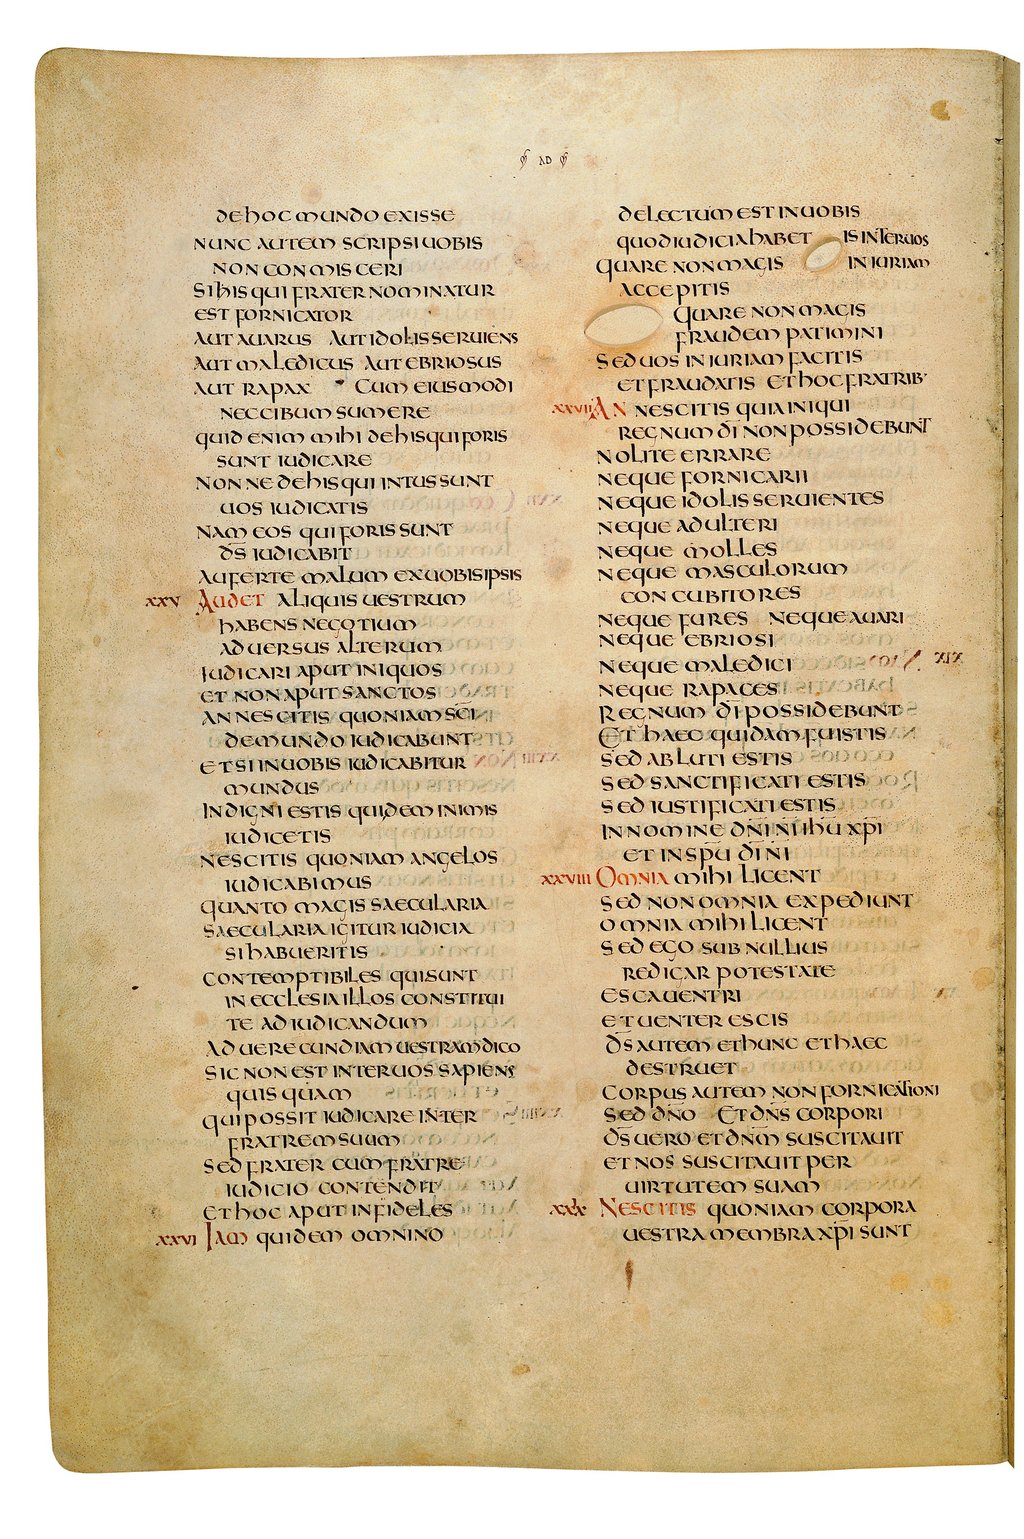 AD
DE HOC MUNDO EXISSE
NUNC AUTEM SCRIPSI UOBIS
NON CONMISCERI
SI HIS QUI FRATER NOMINATUR
EST FORNICATOR
AUT AUARUS AUT IDOLIS SERUIENS
AUT MALEDICUS AUT EBRIOSUS
AUT RAPAX CUM EIUSMODI
NEC CIBUM SUMERE
QUID ENIM MIHI DE HIS QUI FORIS
SUNT IUDICARE
NONNE DE HIS QUI INTUS SUNT
UOS IUDICATIS
NAM EOS QUI FORIS SUNT
D̅S̅ IUDICABIT
AUFERTE MALUM EX UOBIS IPSIS
XXV AUDET ALIQUIS UESTRUM
HABENS NEGOTIUM
ADUERSUS ALTERUM
IUDICARI APUT INIQUOS
ET NON APUT SANCTOS
AN NESCITIS QUONIAM S̅C̅I̅
DE MUNDO IUDICABUNT
ET SI IN UOBIS IUDICABITUR
MUNDUS
INDIGNI ESTIS QUI DE MINIMIS
IUDICETIS
NESCITIS QUONIAM ANGELOS
IUDICABIMUS
QUANTO MAGIS SAECULARIA
SAECULARIA IGITUR IUDICIA
SI HABUERITIS
CONTEMPTIBILES QUI SUNT
IN ECCLESIA ILLOS CONSTITUI
TE AD IUDICANDUM
AD UERECUNDIAM UESTRAM DICO
SIC NON EST INTER UOS SAPIENS
QUISQUAM
QUI POSSIT IUDICARE INTER
FRATREM SUUM
SED FRATER CUM FRATRE
IUDICIO CONTENDIT
ET HOC APUT INFIDELES
XXVI IAM QUIDEM OMNINO
DELECTUM EST IN UOBIS
QUOD IUDICIA HABETIS INTER UOS
QUARE NON MAGIS INIURIAM
ACCEPITIS
QUARE NON MAGIS
FRAUDEM PATIMINI
SED UOS INIURIAM FACITIS
ET FRAUDATIS ET HOC FRATRIB·
XXVII AN NESCITIS QUIA INIQUI
REGNUM D̅I̅ NON POSSIDEBUNT
NOLITE ERRARE
NEQUE FORNICARII
NEQUE IDOLIS SERUIENTES
NEQUE ADULTERI
NEQUE MOLLES
NEQUE MASCULORUM
CONCUBITORES
NEQUE FURES NEQUE AUARI
NEQUE EBRIOSI
NEQUE MALEDICI
NEQUE RAPACES
REGNUM D̅I̅ POSSIDEBUNT
ET HAEC QUIDAM FUISTIS
SED ABLUTI ESTIS
SED SANCTIFICATI ESTIS
SED IUSTIFICATI ESTIS
IN NOMINE D̅N̅I̅ N̅I̅ I̅H̅U̅ X̅P̅I̅
ET IN S̅P̅U̅ D̅I̅ N̅I̅
XXVIII OMNIA MIHI LICENT
SED NON OMNIA EXPEDIUNT
OMNIA MIHI LICENT
SED EGO SUB NULLIUS
REDIGAR POTESTATE
ESCA UENTRI
ET UENTER ESCIS
D̅S̅ AUTEM ET HUNC ET HAEC
DESTRUET
CORPUS AUTEM NON FORNICATIONI
SED D̅N̅O̅ ET D̅N̅S̅ CORPORI
D̅S̅ UERO ET D̅N̅M̅ SUSCITAUIT
ET NOS SUSCITAUIT PER
UIRTUTEM SUAM
XXX NESCITIS QUONIAM CORPORA
UESTRA MEMBRA X̅P̅I̅ SUNT